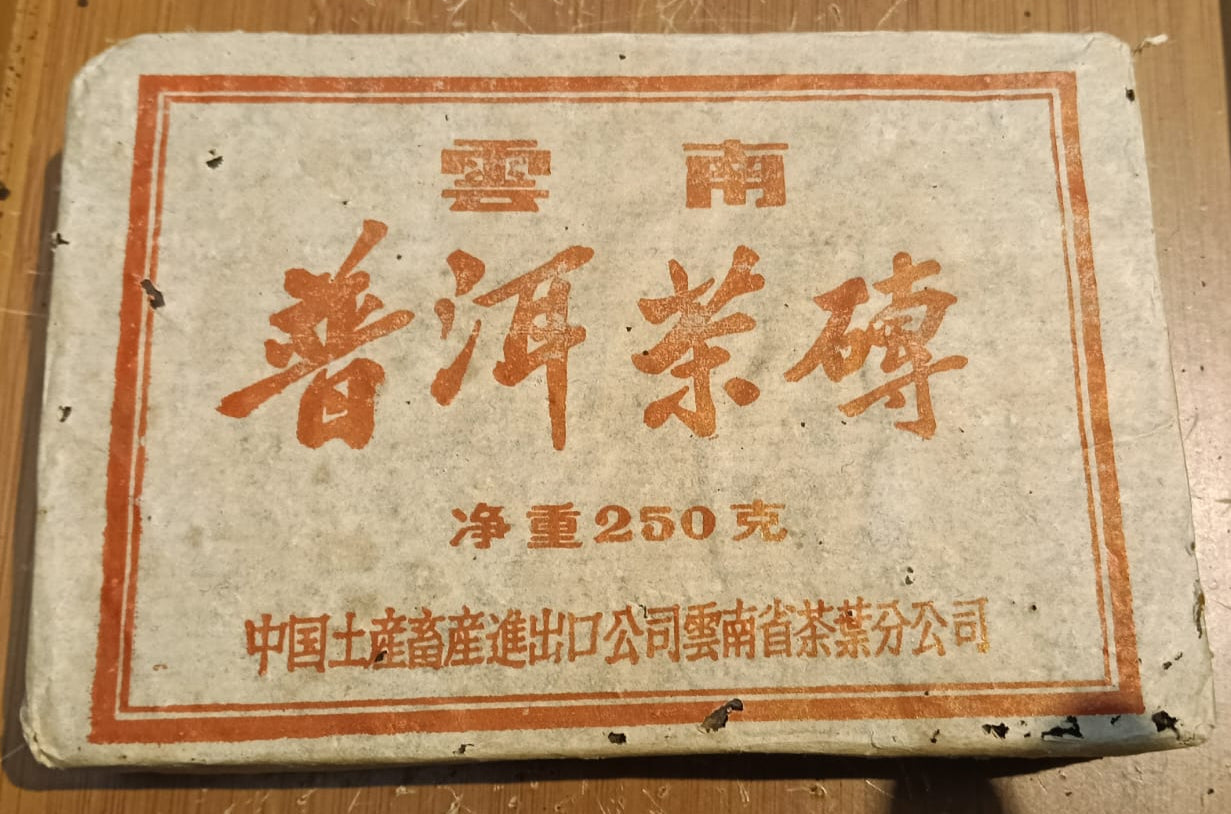 雲南
普洱茶磚
净重250克
中国土産畜産進出口公司雲南省茶葉分公司